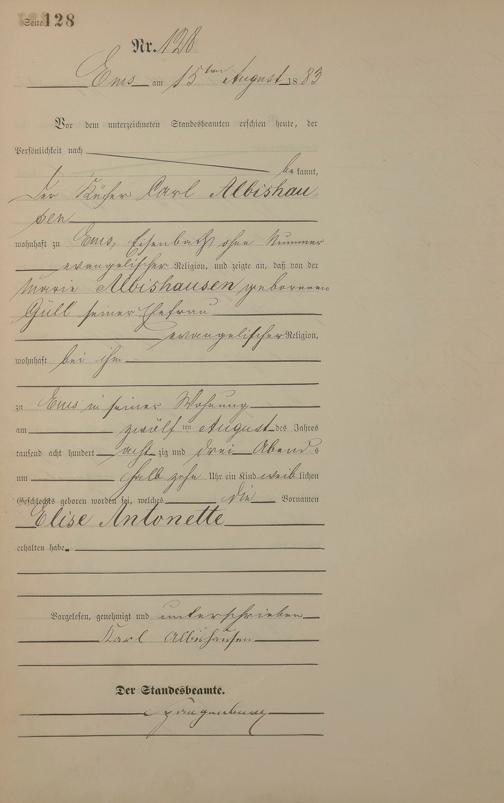 Seite 128
Nr. 128
Ems am 15ten August 1883
Vor dem unterzeichneten Standesbeamten erschien heute, der
Persönlichkeit nach
bekannt,
der Küfer Carl Albishau-
sen
wohnhaft zu Ems, Eisenbach ohne Nummer
evangelischer Religion, und zeigte an, daß von der
Marie Albishausen geborenen
Güll seiner Ehefrau
evangelischer Religion,
wohnhaft bei ihm
zu Ems in seiner Wohnung
am zwölften August des Jahres
tausend acht hundert achtzig und drei Abends
um halb zehn Uhr ein Kind weiblichen
Geschlechts geboren worden sei, welches die Vornamen
Elise Antonette
erhalten habe.
Vorgelesen, genehmigt und unterschrieben
Karl Albishausen
Der Standesbeamte.